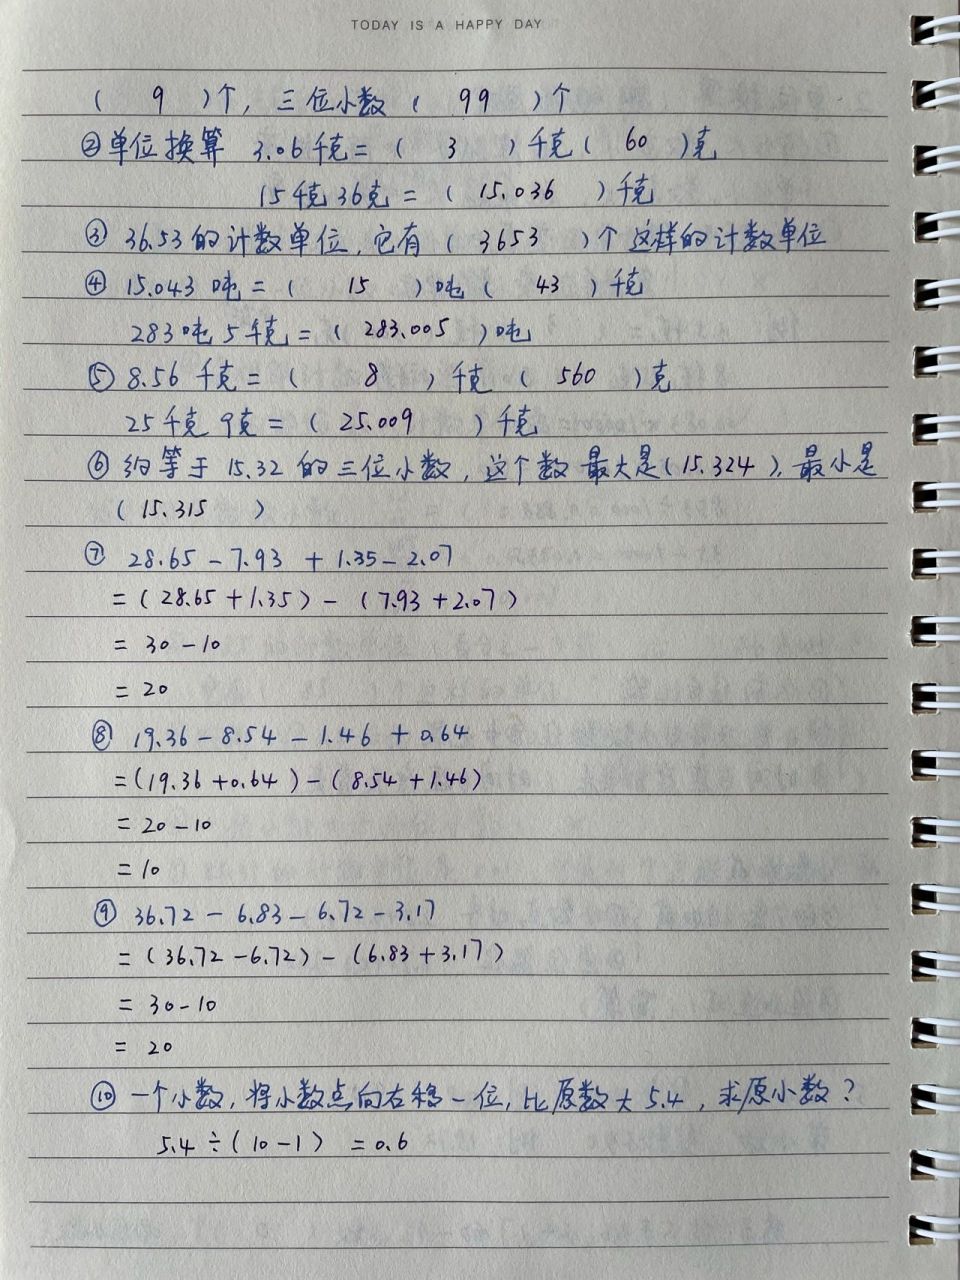 TODAY IS A HAPPY DAY
( 9 )个, 三位小数( 99 )个
②单位换算 3.06千克=( 3 )千克( 60 )克
15千克36克=( 15.036 )千克
③ 36.53的计数单位,它有( 3653 )个这样的计数单位
④ 15.043吨=( 15 )吨( 43 )千克
283吨5千克=( 283.005 )吨
⑤ 8.56千克=( 8 )千克( 560 )克
25千克9克=( 25.009 )千克
⑥ 约等于15.32的三位小数,这个数最大是(15.324),最小是
( 15.315 )
⑦ 28.65-7.93+1.35-2.07
=(28.65+1.35)-(7.93+2.07)
=30-10
=20
⑧ 19.36-8.54-1.46+0.64
=(19.36+0.64)-(8.54+1.46)
=20-10
=10
⑨ 36.72-6.83-6.72-3.17
=(36.72-6.72)-(6.83+3.17)
=30-10
=20
⑩ 一个小数,将小数点向右移一位,比原数大5.4,求原小数?
5.4÷(10-1)=0.6